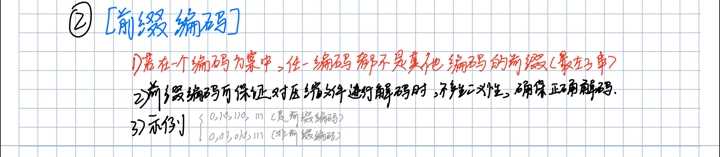 ② [前缀编码]
1)若在一个编码方案中,任一编码都不是其他编码的前缀(最左子串)
2)前缀编码可保证对压缩文件进行解码时,不产生二义性,确保正确解码.
3)示例 { 0,10,110,111 (是前缀编码)
0,01,010,111 (非前缀编码)